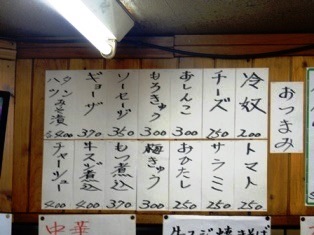 おつまみ
冷奴 200
チーズ 250
おしんこ 300
もろきゅう 300
ソーセージ 350
ギョーザ 390
トマト 250
サラミ 250
おかたし
梅きゅう 300
もつ煮込 390
牛スジ煮込 400
チャーシュー 400
中華
牛スジ焼きそば